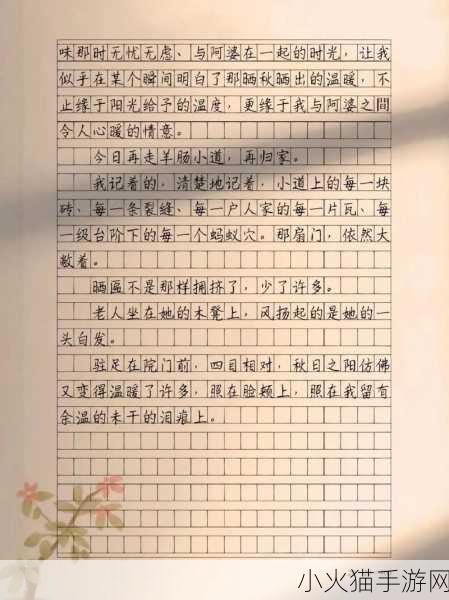 味那时无忧无虑、与阿婆在一起的时光，让我
似乎在某个瞬间明白了那晒秋晒出的温暖，不
止缘于阳光给予的温度，更缘于我与阿婆之間
令人心暖的情意。
今日再走羊肠小道，再归家。
我记着的，清楚地记着，小道上的每一块
砖、每一条裂缝、每一户人家的每一片瓦、每
一级台阶下的每一个蚂蚁穴。那扇门，依然大
敞着。
晒匾不是那样拥挤了，少了许多。
老人坐在她的木凳上，风扬起的是她的一
头白发。
驻足在院门前，四目相对，秋日之阳仿佛
又变得温暖了许多，照在脸颊上，照在我留有
余温的未干的泪痕上。
小火猫手游网